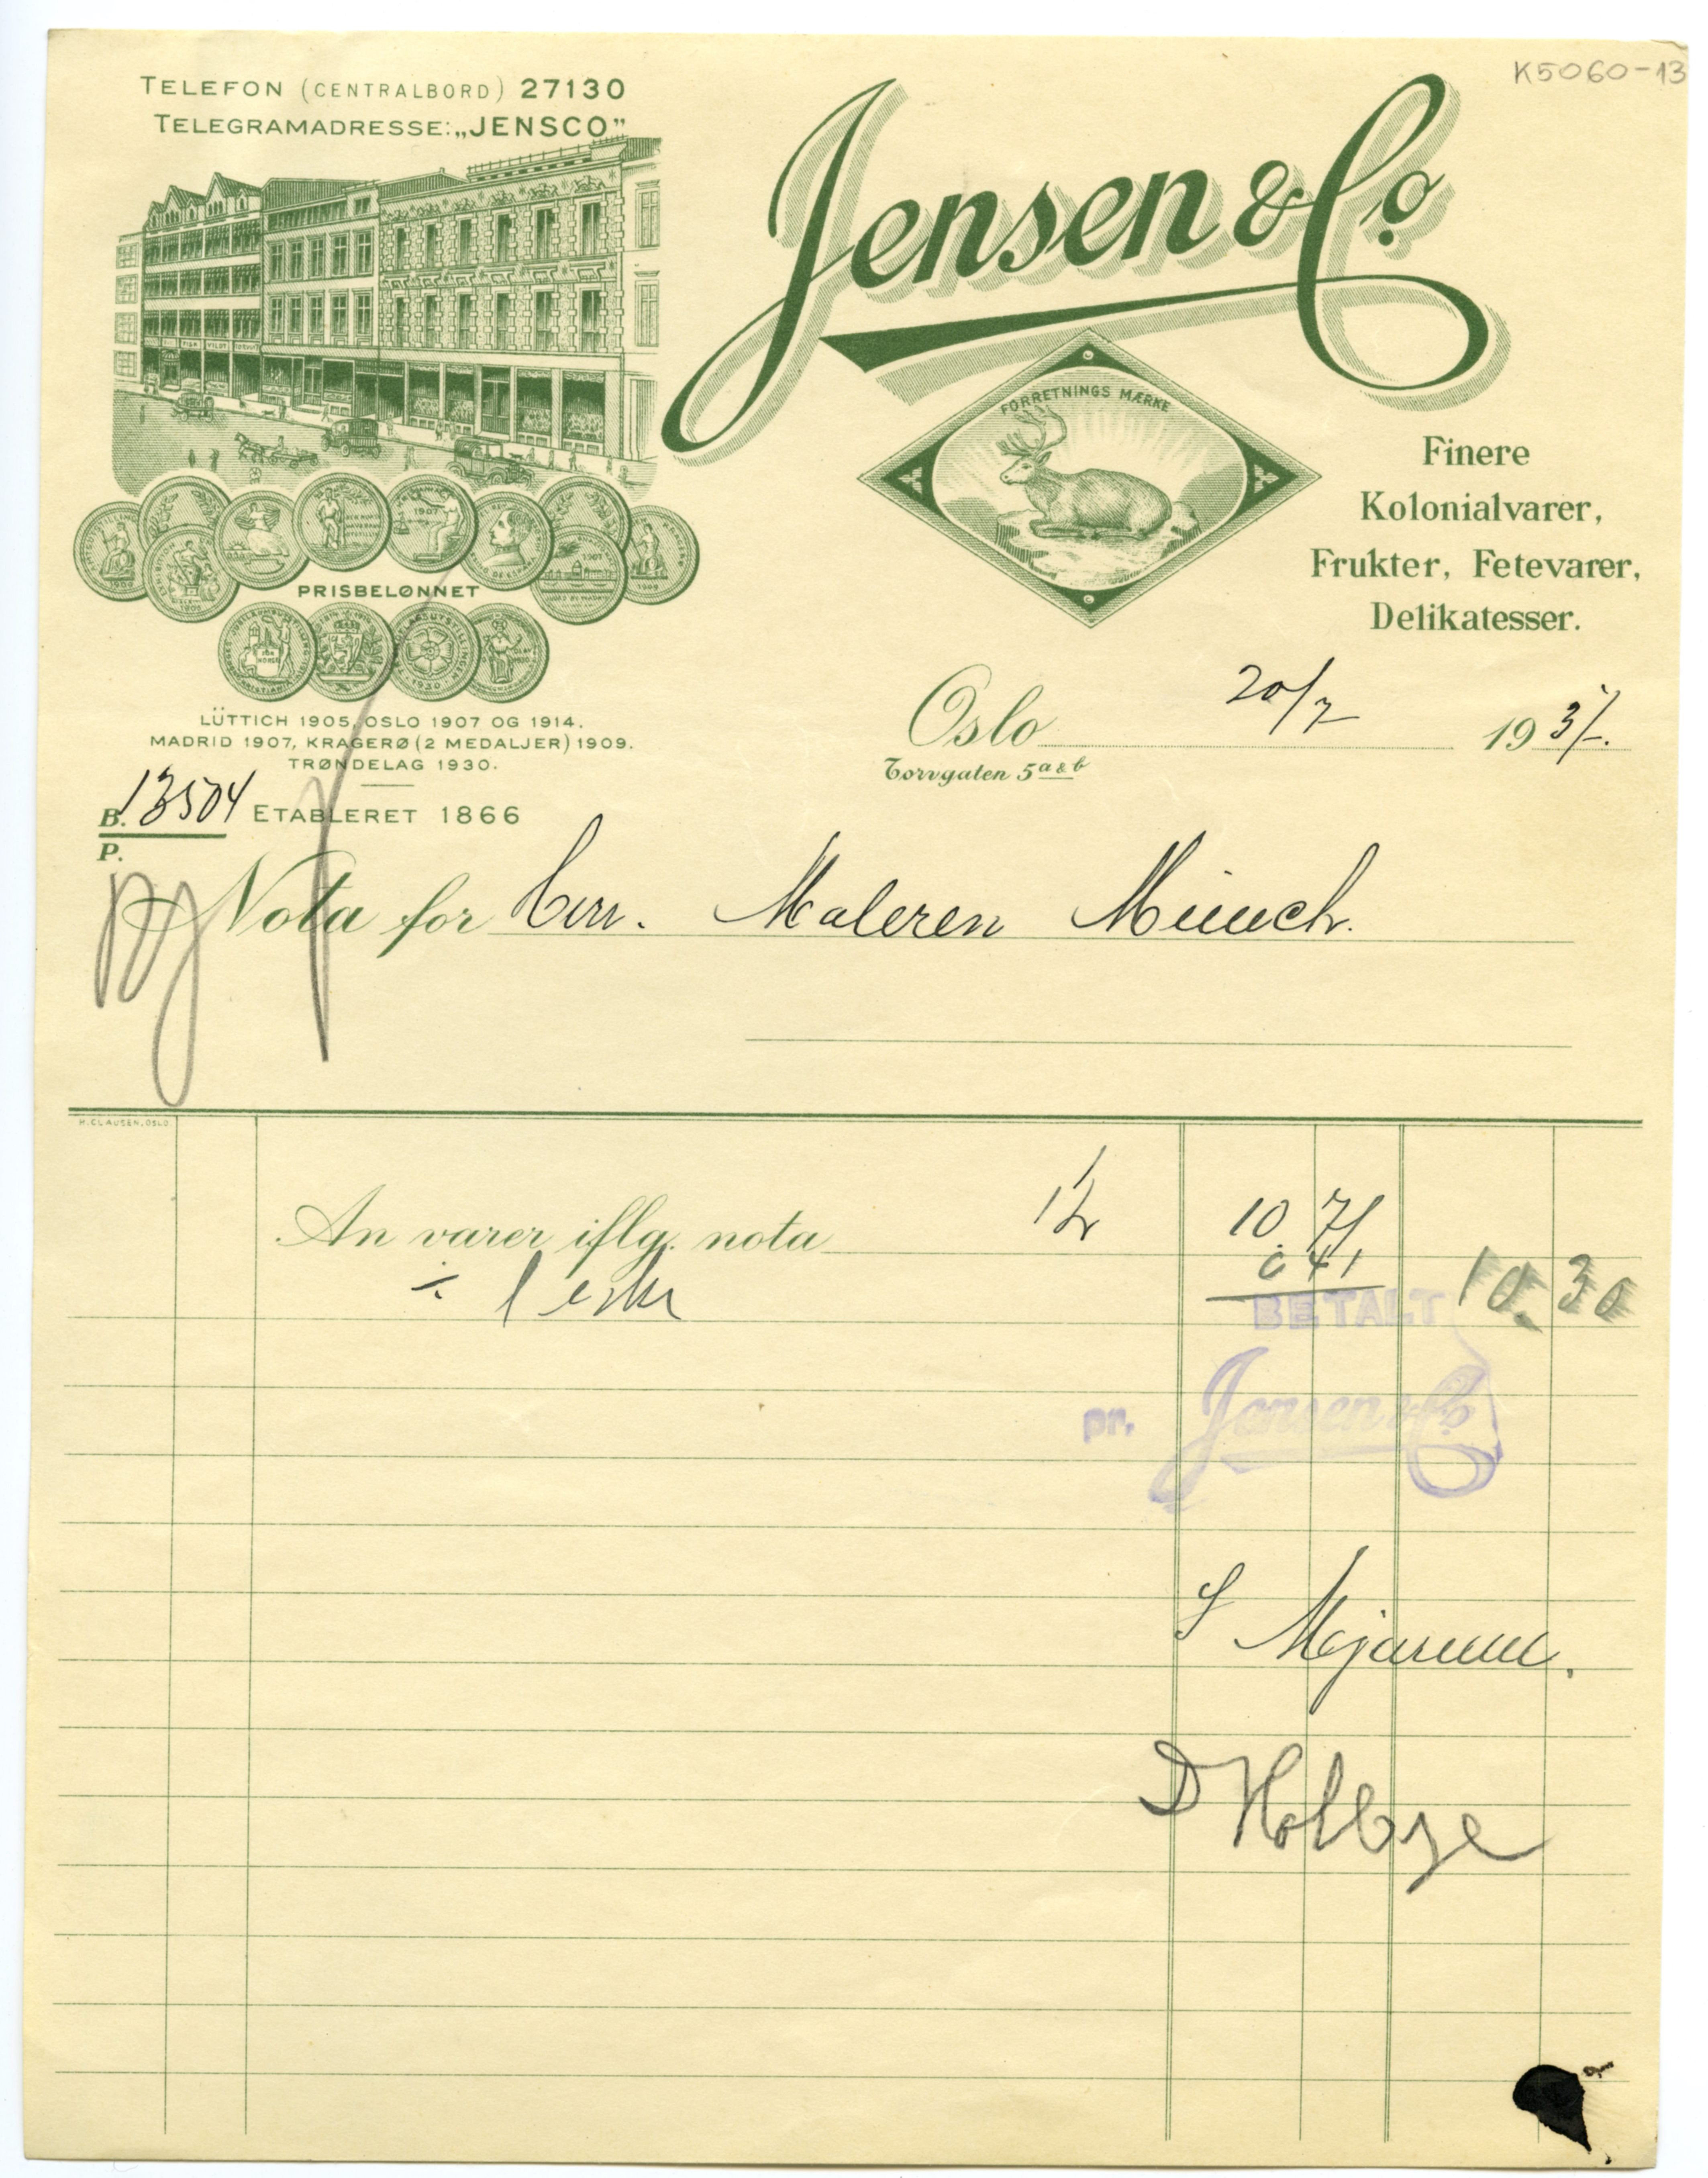 K5060-13
TELEFON (CENTRALBORD) 27130
TELEGRAMADRESSE: „JENSCO”
Jensen & Co
FORRETNINGS MÆRKE
Finere
Kolonialvarer,
Frukter, Fetevarer,
Delikatesser.
PRISBELØNNET
LÜTTICH 1905, OSLO 1907 OG 1914.
MADRID 1907, KRAGERØ (2 MEDALJER) 1909.
TRØNDELAG 1930.
Oslo 20/7 193
Torvgaten 5 a & b
B. 13504 ETABLERET 1866
P.
Nota for Herr. Maleren Münch.
M. CLAUSEN, OSLO.
An varer iflg. nota 10 71
÷ 0 41
10.30
BETALT
pr. Jensen & Co
D Holbye